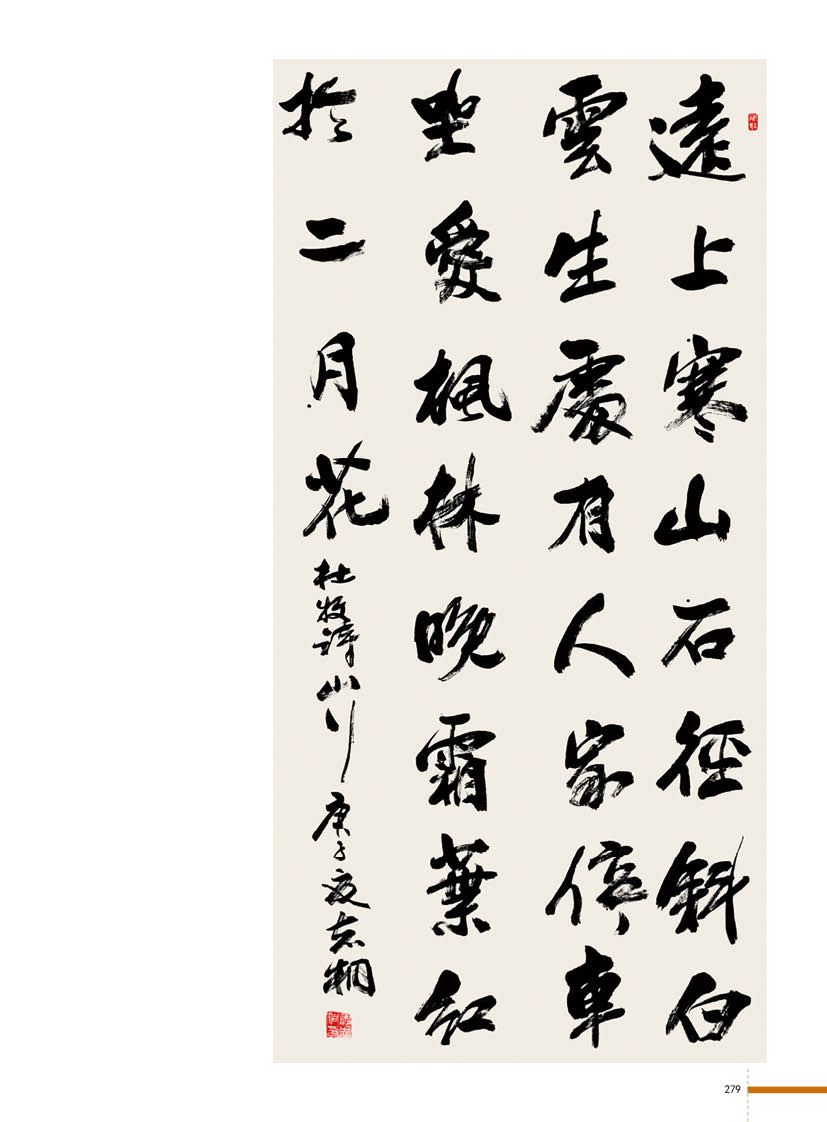 遠上寒山石徑斜白
雲生處有人家停車
坐愛楓林晚霜葉紅
於二月花
杜牧詩山行 庚子夏志桐
279